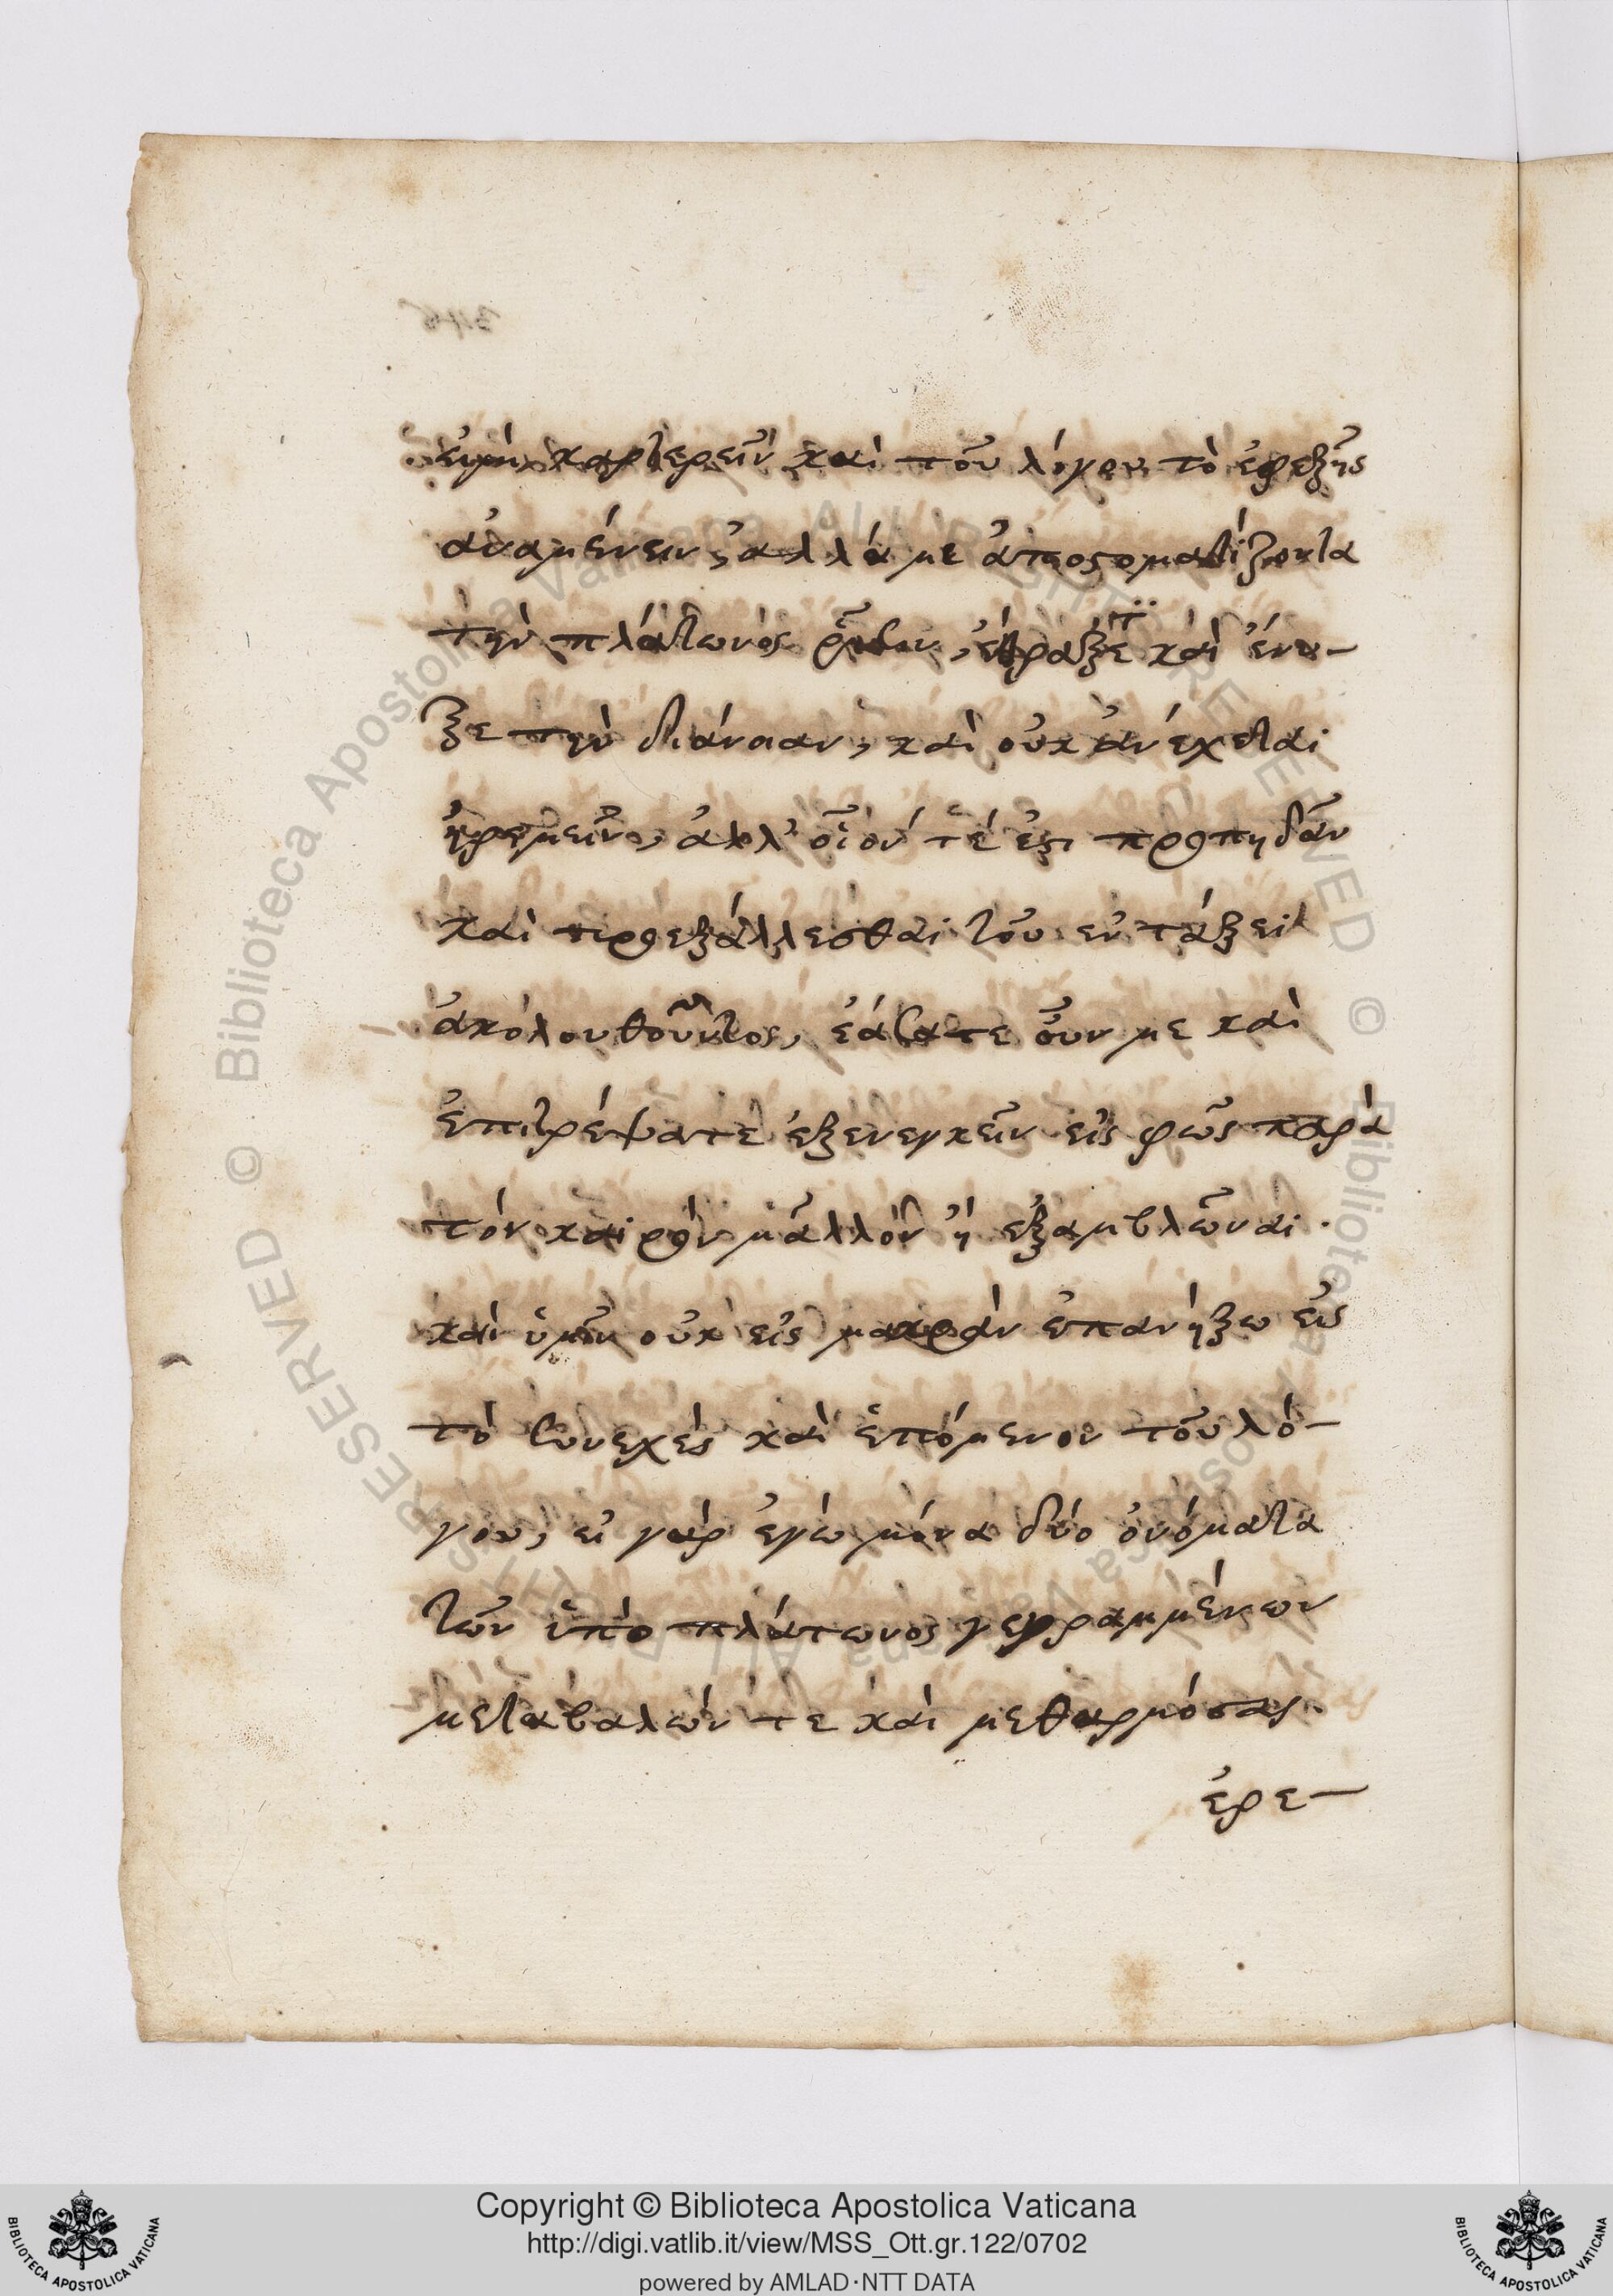 εἰμὴ καρτερεῖν καὶ τοῦ λόγου τὸ ἐφεξῆς
ἀναμένειν, ἀλλά με ἀποστοματίζοντα
τὴν πλάτωνός ῥῆσιν, ἔθραξέ καὶ ἔνυ-
ξε τὴν διάνοιαν, καὶ οὐκ ἀνέχεται
ἠρεμεῖν, ἀλλ' οἷόν τέ ἐστι προπηδᾶν
καὶ προεξάλλεσθαι τοῦ ἐν τάξει
ἀκολουθοῦντος, ἐάσατε οὖν με καὶ
ἐπιτρέψατε ἐξενεγκεῖν εἰς φῶς παρὰ
τὸν καιρὸν μᾶλλον ἢ ἐξαμβλῶναι.
καὶ ὑμῖν οὐκ εἰς μακρὰν ἐπανήξω εἰς
τὸ συνεχὲς καὶ ἑπόμενον τοῦ λό-
γου, εἰ γὰρ ἐγὼ μόνα δύο ὀνόματα
τῶν ὑπὸ πλάτωνος γεγραμμένων
μεταβαλών τε καὶ μεθαρμόσας.
ἐρε-
Copyright © Biblioteca Apostolica Vaticana
http://digi.vatlib.it/view/MSS_Ott.gr.122/0702
powered by AMLAD·NTT DATA
BIBLIOTECA APOSTOLICA VATICANA
BIBLIOTECA APOSTOLICA VATICANA